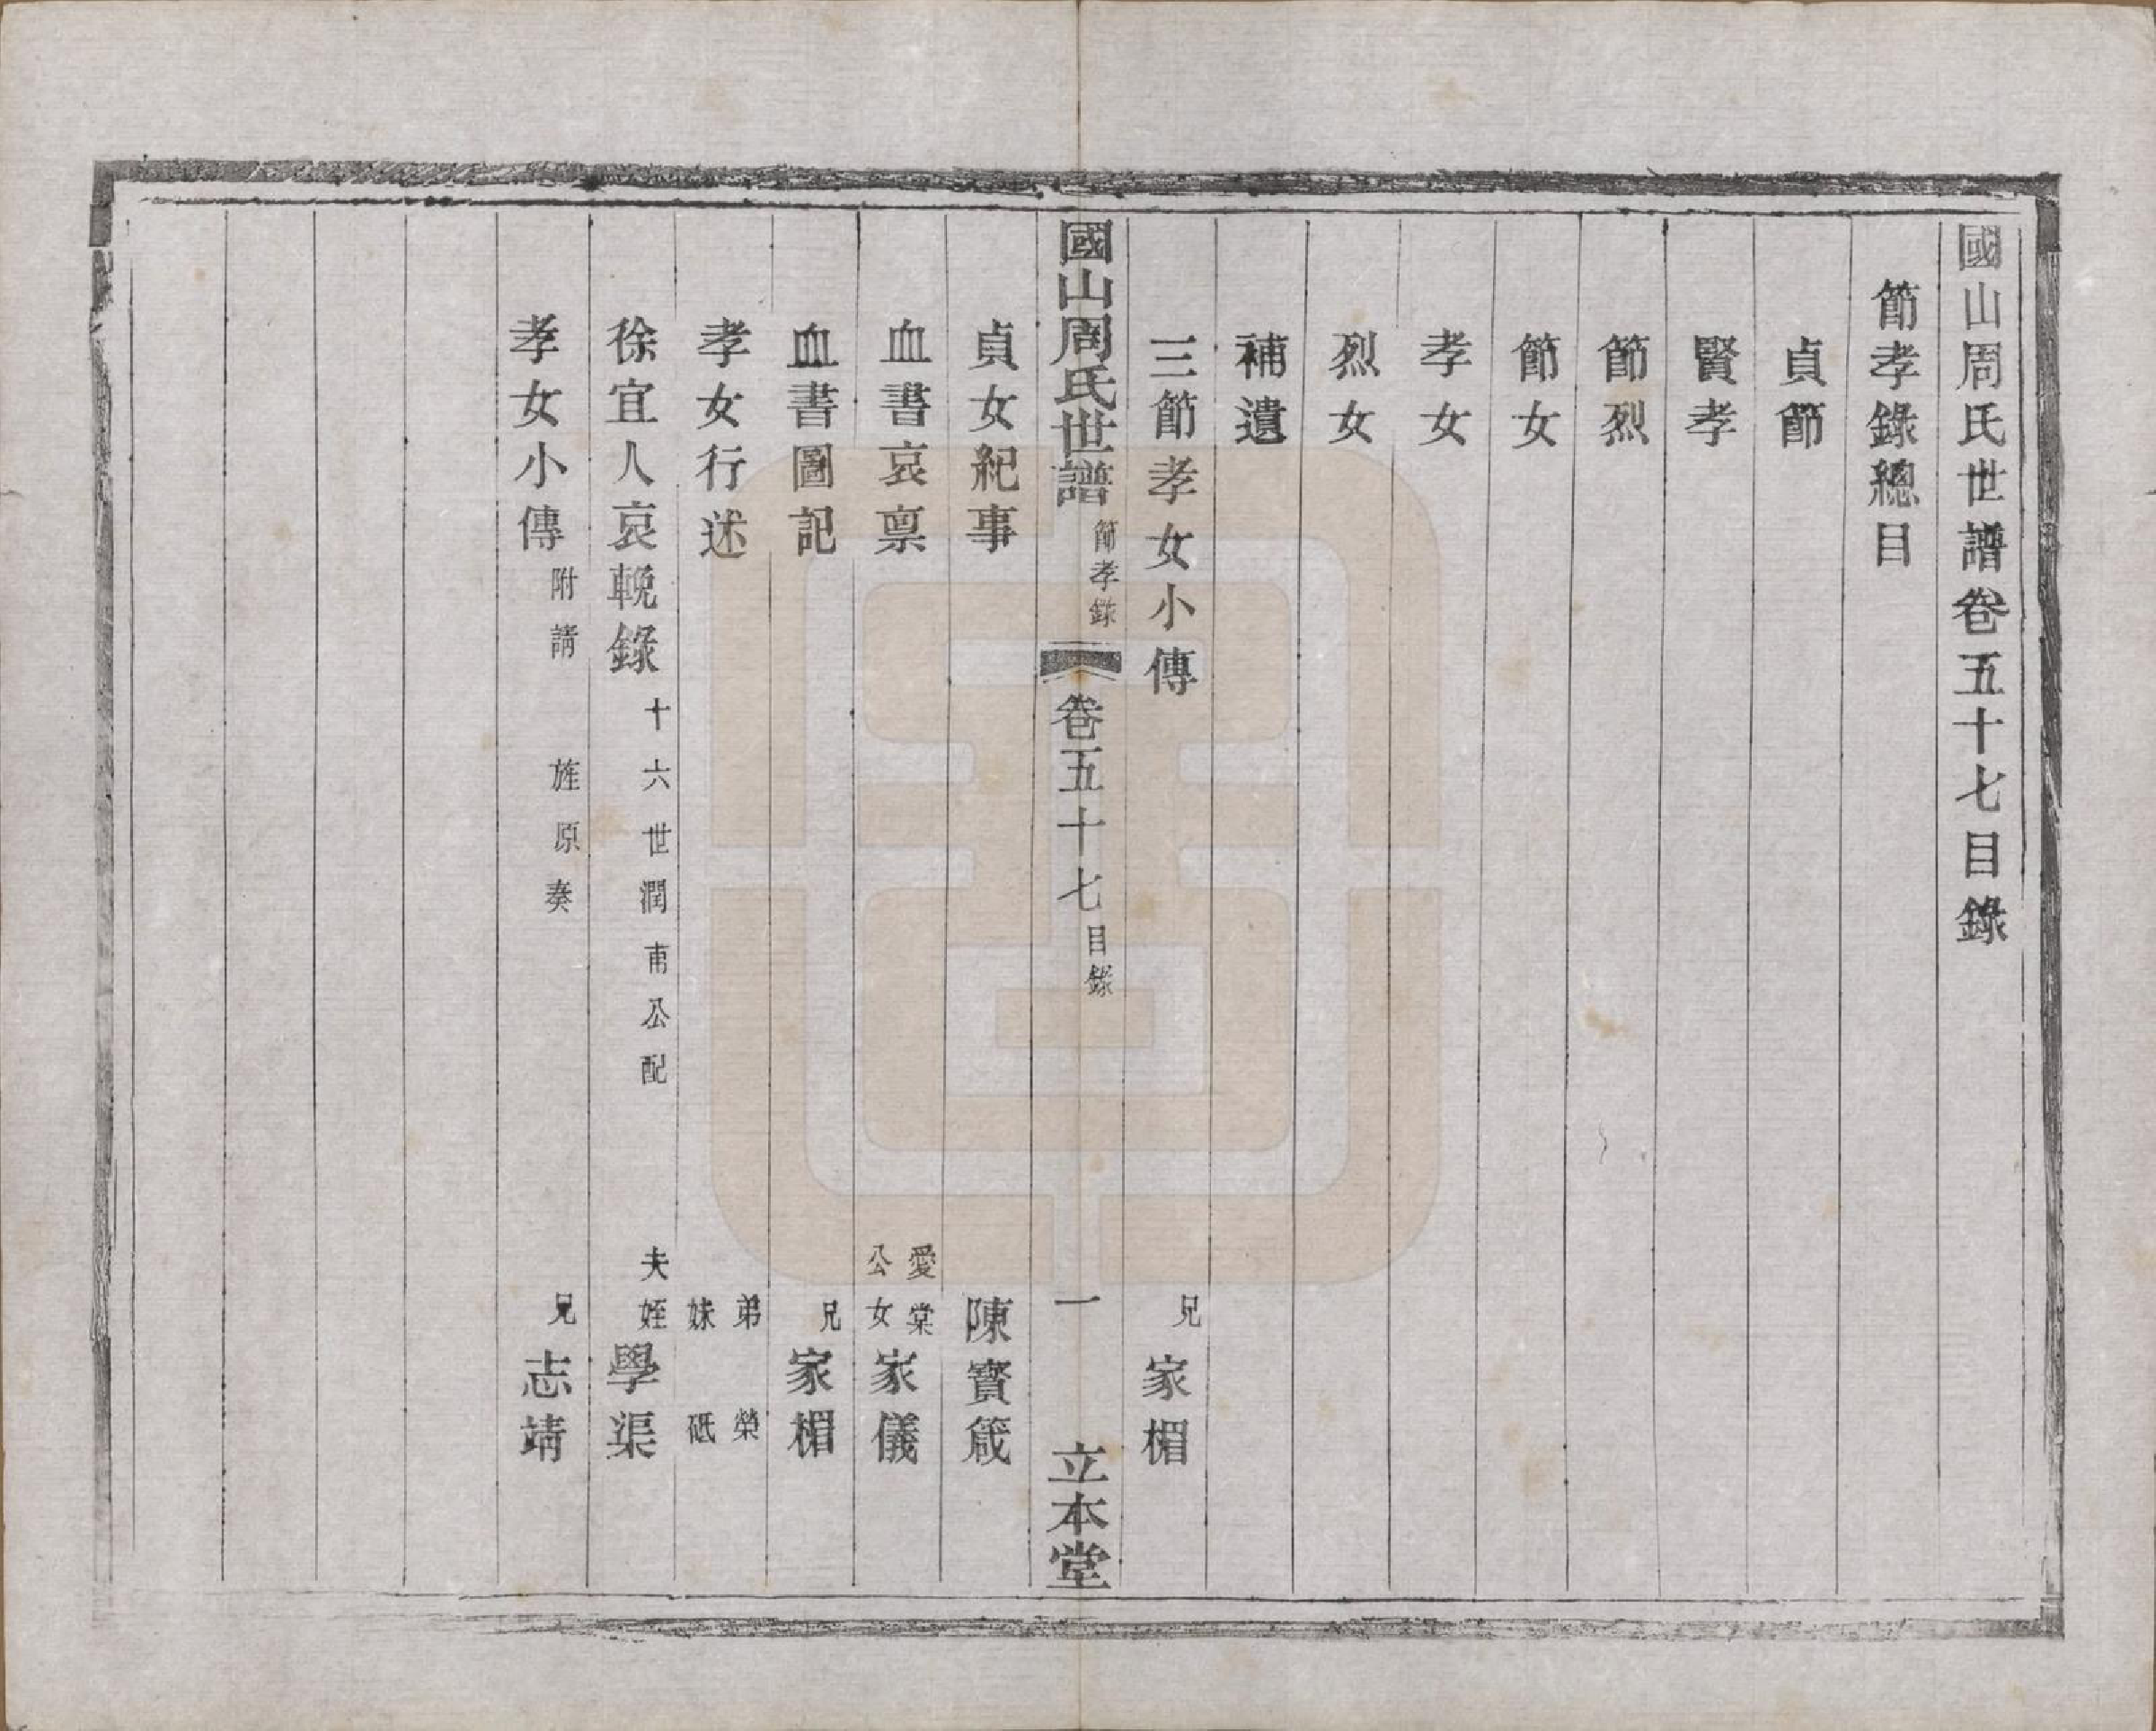 國山周氏世譜卷五十七目錄
節孝錄總目
貞節
賢孝
節烈
節女
孝女
烈女
補遺
三節孝女小傳 兄家楣
國山周氏世譜 節孝錄 卷五十七 目錄 一 立本堂
貞女紀事 陳寶箴
血書哀稟 愛棠公女家儀
血書圖記 兄家楣
孝女行述 弟榮 妹砥
徐宜人哀輓錄 十六世潤甫公配 夫姪學渠
孝女小傳 附請 旌原奏 兄志靖